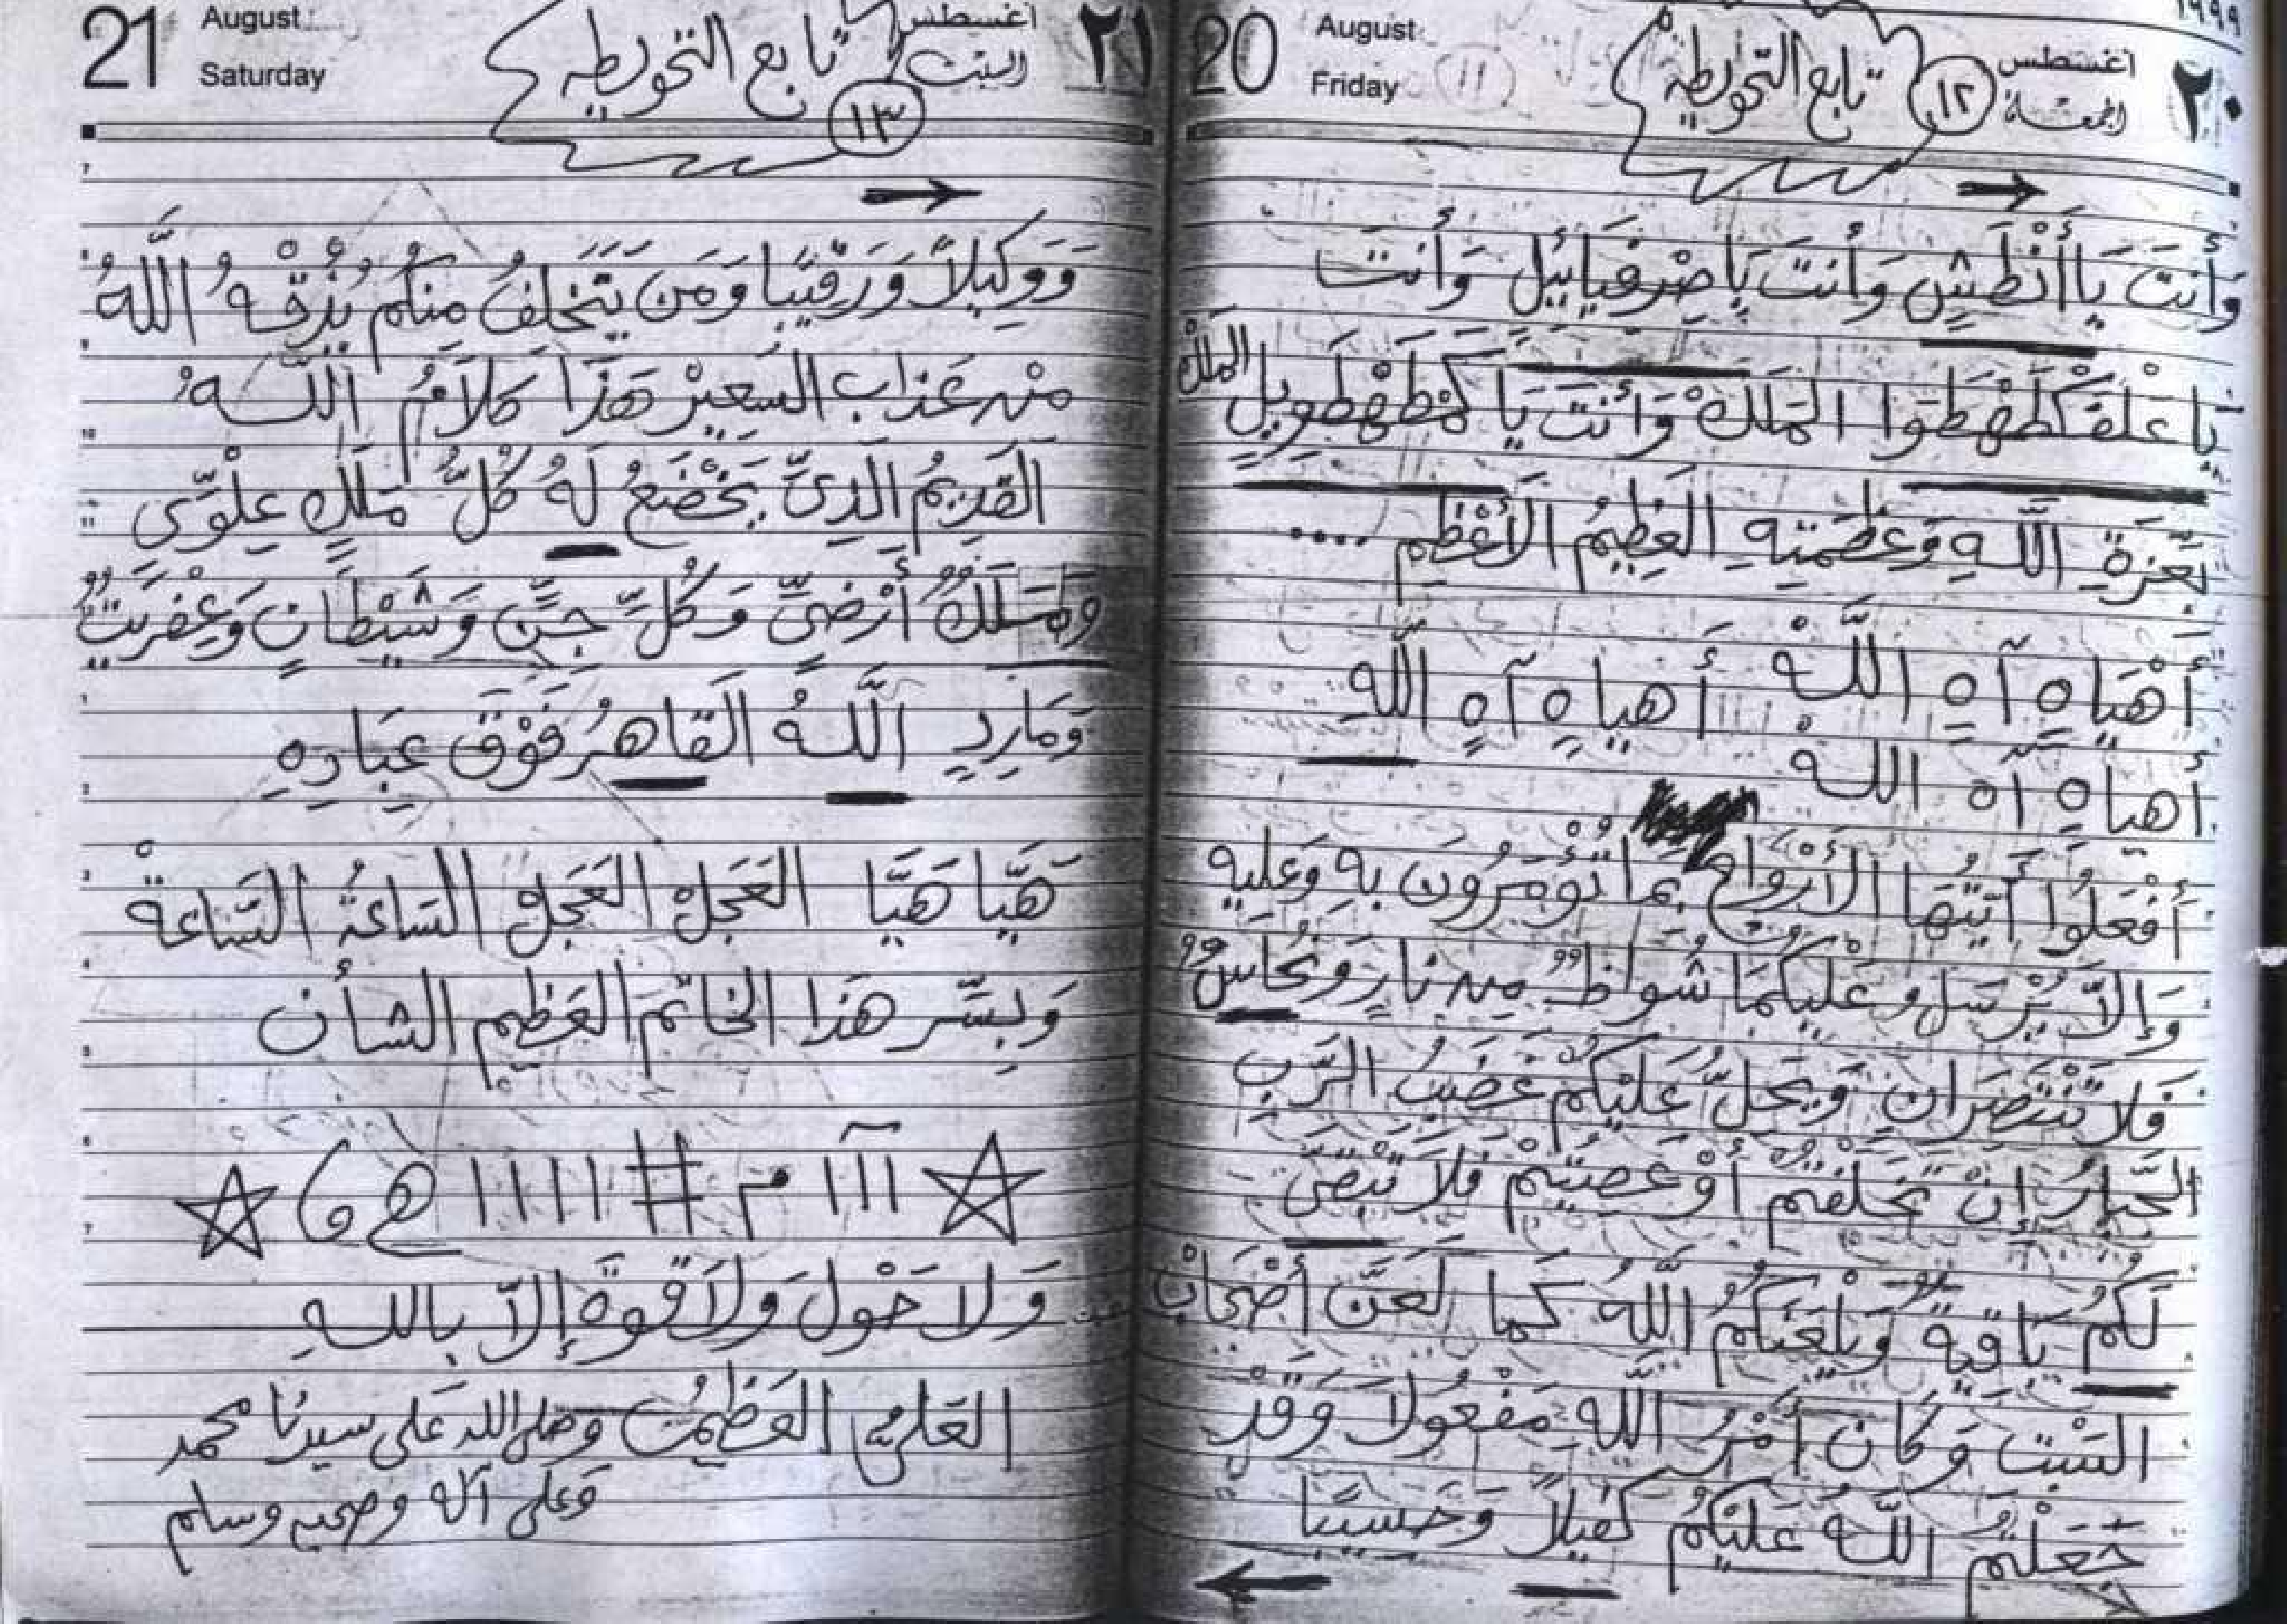 ١٩٩٩
٢٠ أغسطس الجمعة
August 20
Friday
١١
تابع التحويطة ١٢
وَأَنتَ يَا أَنْطَشٍ وَأَنتَ يَا صَرْفَيَائِيل وَأَنتَ
الْمَلَكْ وَأَنتَ يَا الملك
بِعِزَةِ اللَّهِ وَعَظَمَتِهِ العَظِيمُ الأَعْظَمِ ....
أَهْيَاهٍ آهٍ اللَّهْ أَهياهٍ آهٍ اللَّهِ
أهياه آه اللهْ
أَفْعَلُوا أَيَّتُهَا الأَرْوَاحُ بِمَا تُؤْمَرُونَ بِهِ وَعَليهِ
وَإِلاّ يُرْسَلُ عَلَيْكُمَا شُوَاظٌ مِن نَارٍ وَنُحَاسٌ
فَلاَ تَنْتَصِرَانِ وَيَحِلُّ عَلَيْكُمْ غَضَبُ الرَّبِ
الجَّبارُ إِنْ تَخَلَفتم أَوْ عَصَيْتُمْ فَلاَ تَبْقَىَ
لَكُمْ بَاقِيةٌ وَيَلْعَنَكُمُ اللَّهُ كَمَا لَعَنَ أَصْحَابْ
السَّبْتِ وَكَانَ أَمْرُ اللَّهِ مَفْعُولاً وَقَدْ
جَعَلْتُمُ اللَّهُ عَلَيْكُمْ كَفِيلاً وَحَسِيبًا
٢١ أغسطس السبت
August 21
Saturday
تابع التحويطه ١٣
وَوَكِيلاً وَرَقِيبًا وَمَن يَتَخَلفُ مِنكُم يُذِقْهُ اللَّهُ
مِنْ عَذَابِ السَعِيرْ هَذَا كَلاَمُ اللَّهُ
القَدِيمُ الَّذِىّ يَخْضَعُ لَهُ كُلُّ مَلَكٍ عِلْوّىِ
وَمَلَكٌ أَرْضِىٍّ وَكُلِّ جِنٍّ وَشَيْطَانٍ وَعِفْرِيتٌ
وَمَارِدٍ اللَّهُ القَاهِرُ فَوْقَ عِبَادِهِ
هَيَّا هَيَّا العَجَلْ العَجَلْ السَاعَةُ السَّاعَةْ
وَبِسِّر هَذَا الخَاتَم العَظِيمِ الشأن
☆ ااا م # اااا ھ ☆
وَلاَ حَوْلَ وَلاَ قُوةَ إِلاّ بِاللهِ
العَلىِّ العَظِيمُ وصلى الله عَلى سيدنا محمد
وَعَلى آله وصحبه وسلم